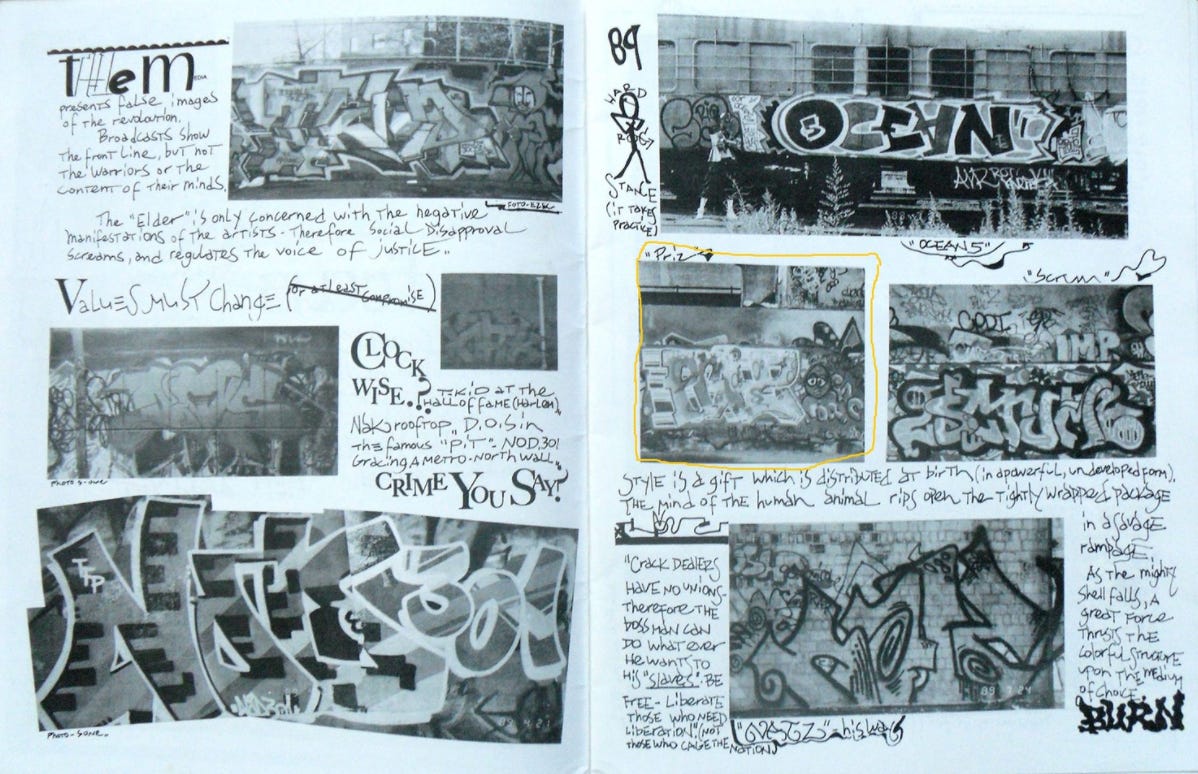 them
EDIA
presents false images
of the revolution.
Broadcasts show
the front line, but not
the warriors or the
content of their minds.
FOTO-EZEC
The "Elder" is only concerned with the negative
manifestations of the artists. Therefore Social Disapproval
screams, and regulates the voice of justice.
VALUES MUST CHANGE (or at least compromise)
CLOCK
WISE.?
T-KID AT THE
HALL OF FAME (HARLEM),
Nak rooftop, D.O.S in
the famous "PIT". NOD, 301
Gracing A METRO-NORTH WALL
CRIME YOU SAY?
PHOTO S-ONE
TFP
89 4 23
PHOTO-SONE
89
HARD
ROC
STANCE
(it takes
practice)
OCEAN
"OCEAN 5"
"Priz"
"Scrum"
CODI
IMP
STYLE is a gift which is distributed at birth (in a powerful, undeveloped form).
THE mind of the human animal rips open the tightly wrapped package
in a savage
rampage.
As the mighty
shell falls, A
great force
thrusts the
colorful structure
upon the medium
of choice.
BURN
"Crack Dealers
HAVE NO UNIONS-
therefore the
boss man can
do what ever
he wants to
his "slaves". BE
FREE - Liberate
those who need
liberation". (not
those who cause the nation)
89 7 24
his way